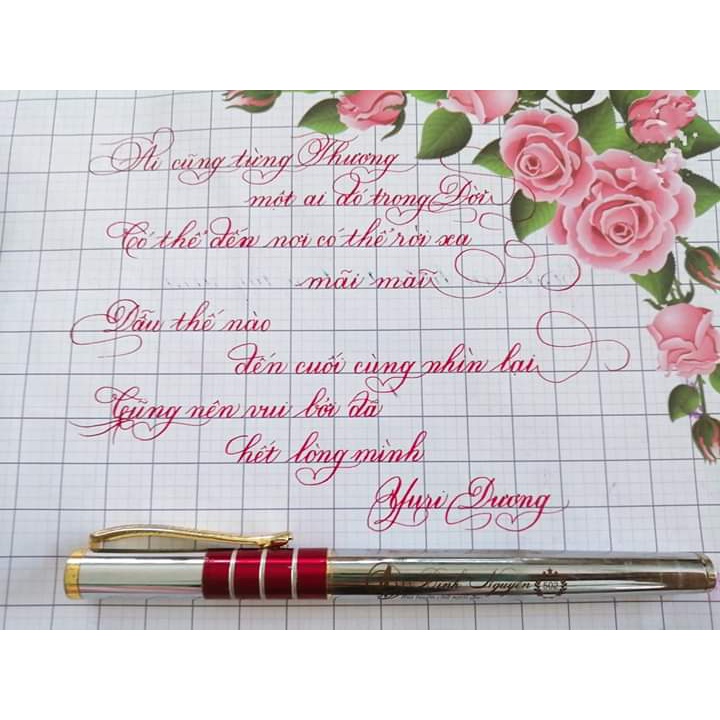 Ai cũng từng Thương
một ai đó trong Đời
Có thể đến nơi có thể rời xa
mãi mãi
Dẫu thế nào
đến cuối cùng nhìn lại
Cũng nên vui bởi đã
hết lòng mình
Yuri Dương
Ánh Nguyên 602